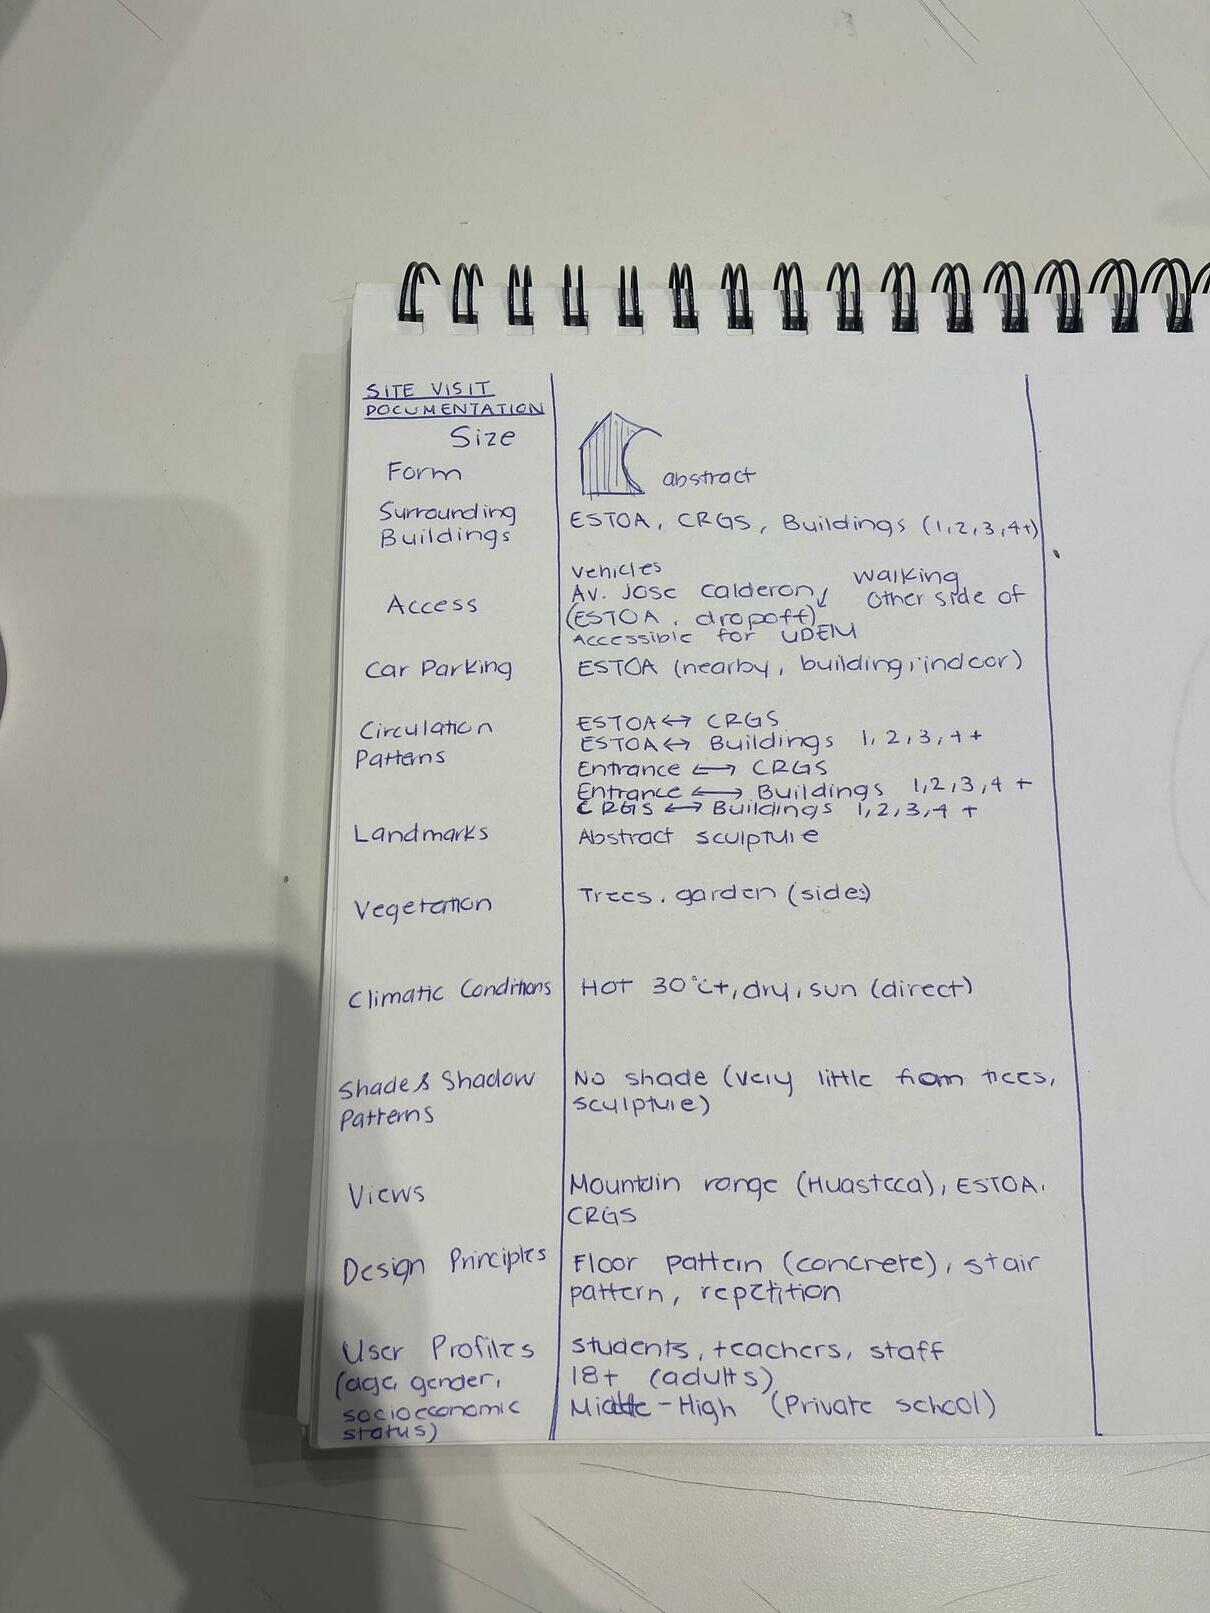 SITE VISIT
DOCUMENTATION
Size
Form
abstract
Surrounding
Buildings
ESTOA, CRGS, Buildings (1,2,3,4+)
Access
Vehicles
Av. Jose Calderon,
(ESTOA, dropoff)
Accessible for UDEM
Walking
Other side of
Car Parking
ESTOA (nearby, building, indoor)
Circulation
Patterns
ESTOA ↔ CRGS
ESTOA ↔ Buildings 1,2,3,4+
Entrance ↔ CRGS
Entrance ↔ Buildings 1,2,3,4 +
CRGS ↔ Buildings 1,2,3,4 +
Landmarks
Abstract sculpture
Vegetation
Trees, garden (sides)
Climatic Conditions
Hot 30°C+, dry, sun (direct)
Shade & Shadow
Patterns
No shade (very little from trees,
sculpture)
Views
Mountain range (Huasteca), ESTOA,
CRGS
Design Principles
Floor pattern (concrete), stair
pattern, repetition
User Profiles
(age, gender,
socioeconomic
status)
students, teachers, staff
18+ (adults)
Middle - High (Private school)